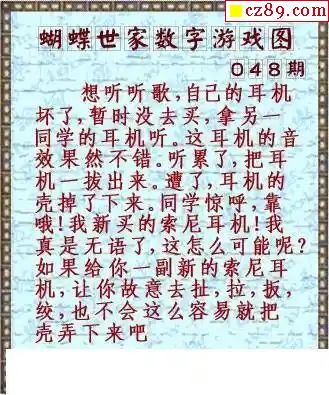 cz89.com
蝴蝶世家数字游戏图
048期
想听听歌,自己的耳机
坏了,暂时没去买,拿另一
同学的耳机听。这耳机的音
效果然不错。听累了,把耳
机一拔出来。遭了,耳机的
壳掉了下来。同学惊呼,靠
哦!我新买的索尼耳机!我
真是无语了,这怎么可能呢?
如果给你一副新的索尼耳
机,让你故意去扯,拉,扳,
绞,也不会这么容易就把
壳弄下来吧